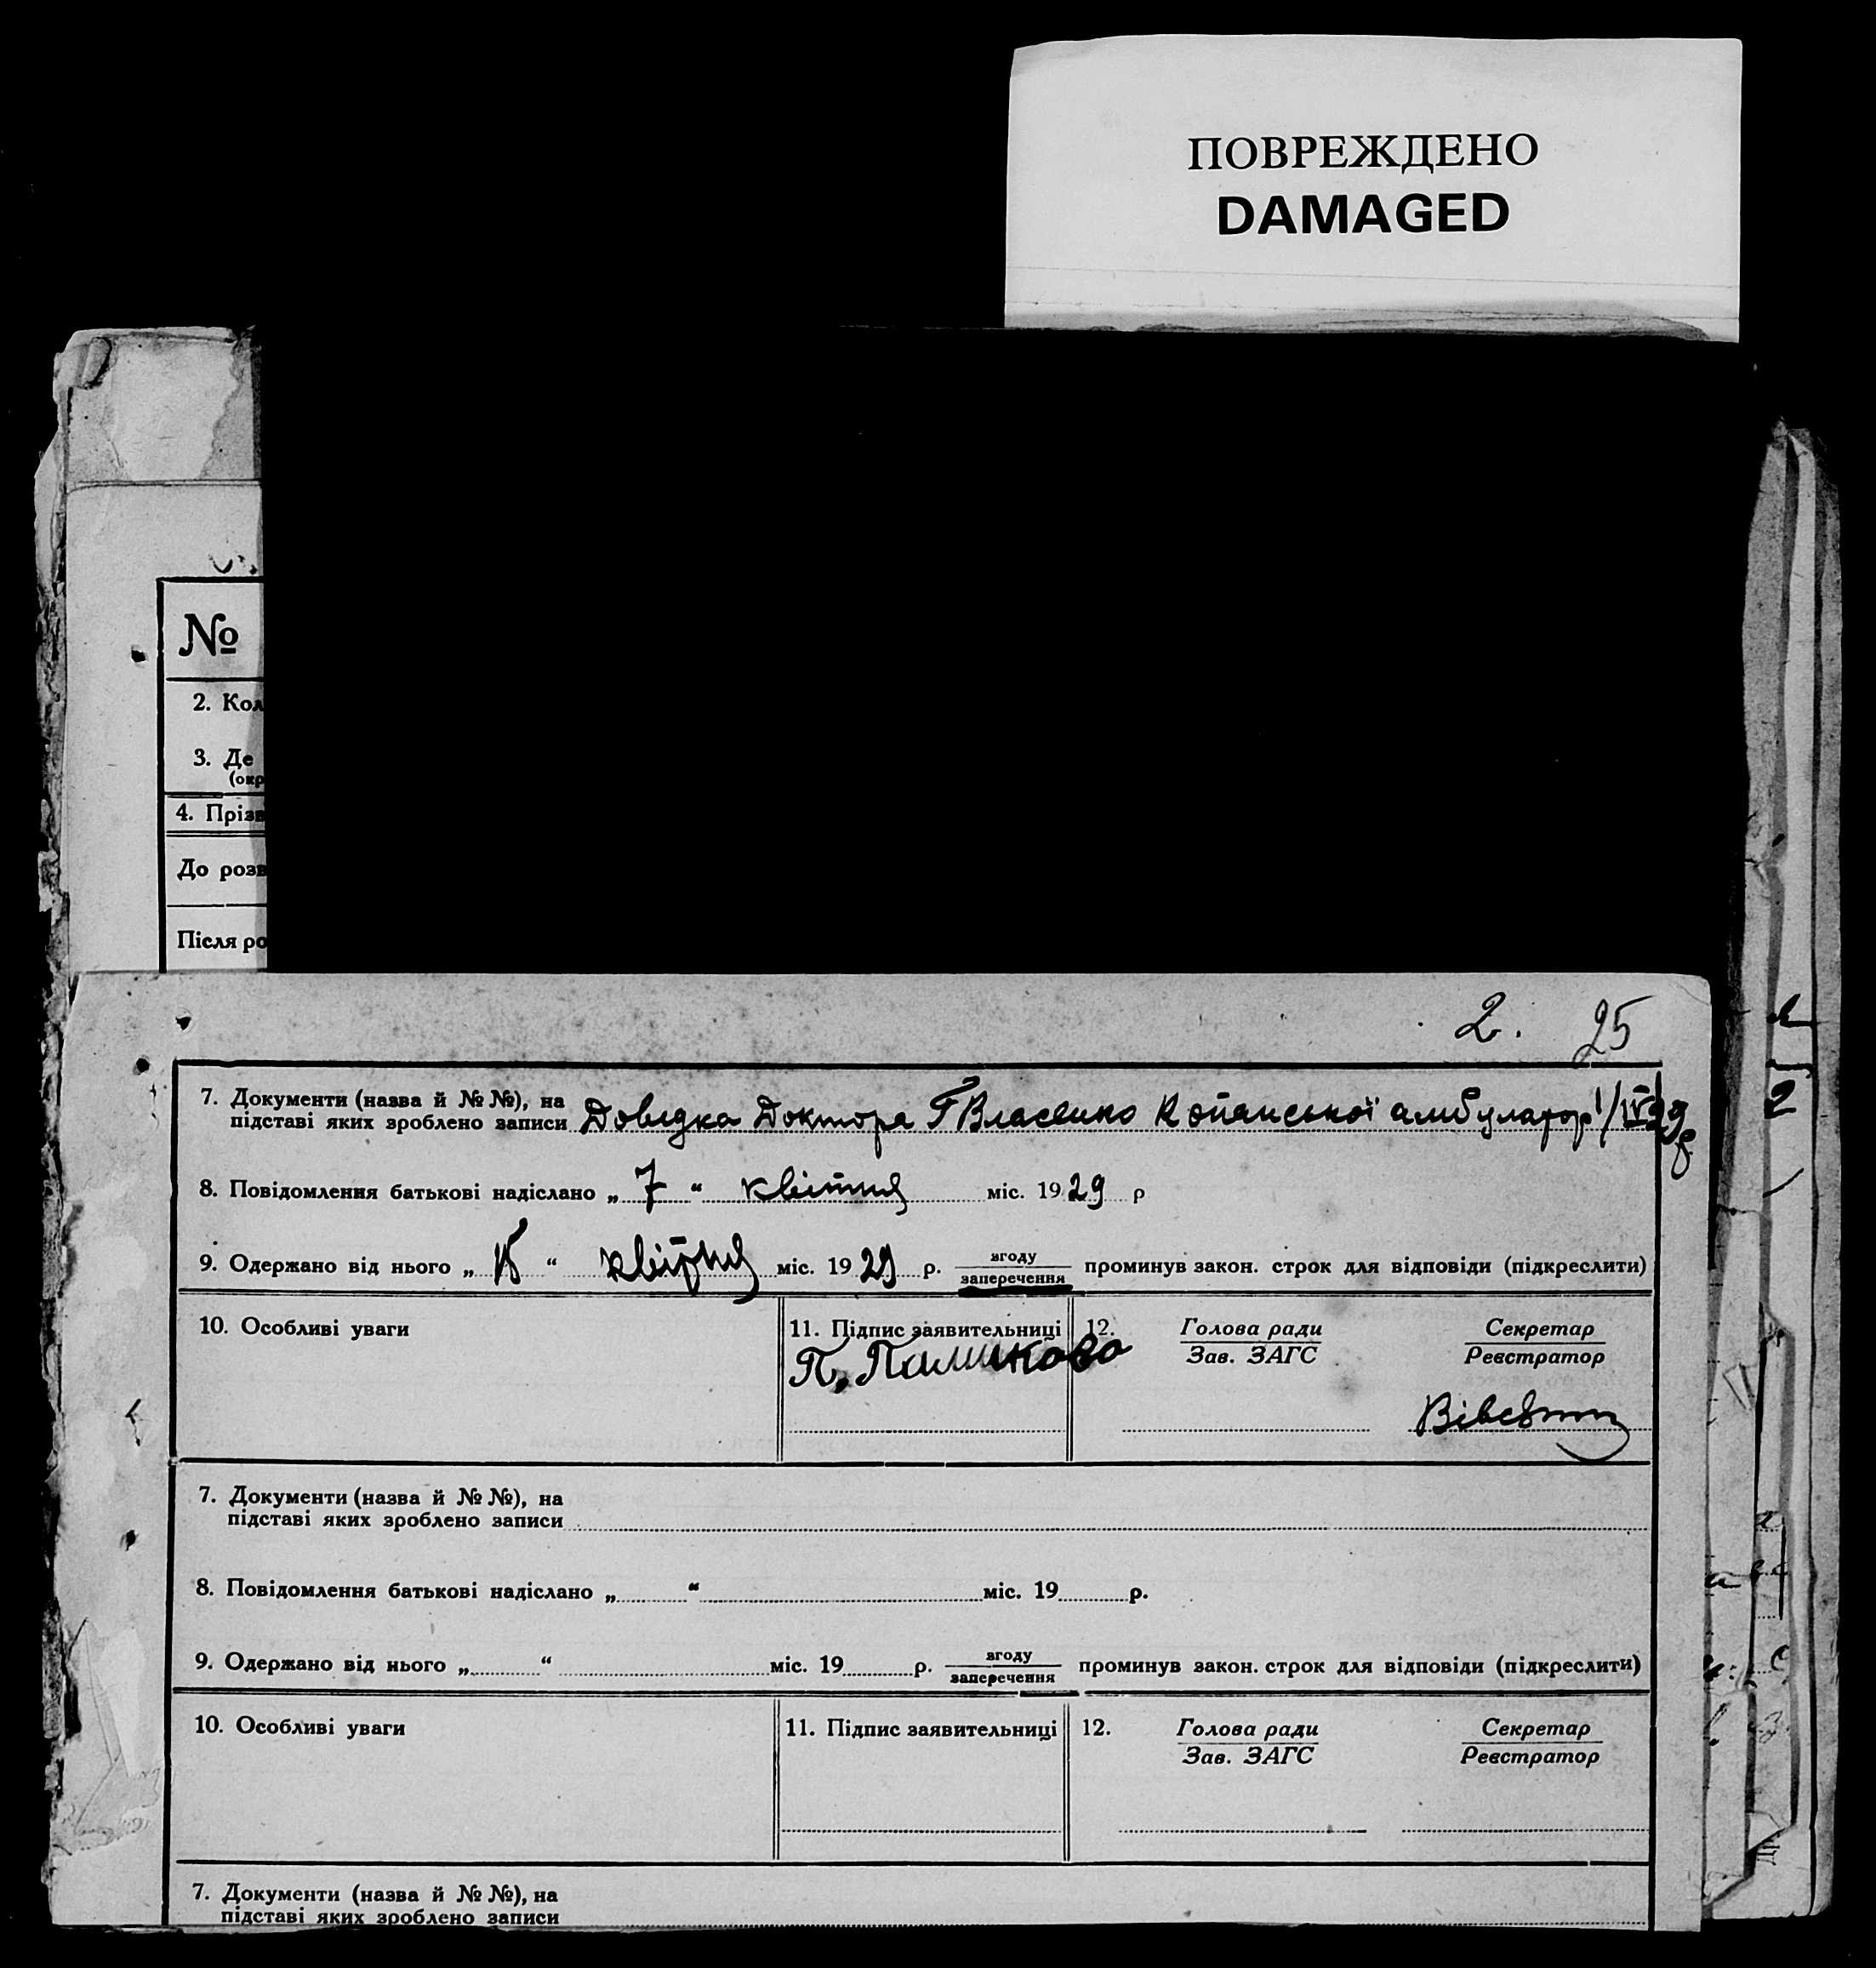 ПОВРЕЖДЕНО
DAMAGED
№
2. Кол
3. Де
(окр
4. Прізв
До розв
Після ро
2. 25
7. Документи (назва й №№), на
підставі яких зроблено записи Довидка Доктора Власенко Копанської амбулатор 1/IV 29 р
8. Повідомлення батькові надіслано „ 7 “ квітня міс. 1929 р
9. Одержано від нього „ “ квітня міс. 1929 р. згоду
заперечення проминув закон. строк для відповіди (підкреслити)
10. Особливі уваги
11. Підпис заявительниці
П.
12. Голова ради
Зав. ЗАГС
Секретар
Реєстратор
7. Документи (назва й №№), на
підставі яких зроблено записи
8. Повідомлення батькові надіслано „ “ міс. 19 р.
9. Одержано від нього „ “ міс. 19 р. згоду
заперечення проминув закон. строк для відповіди (підкреслити)
10. Особливі уваги
11. Підпис заявительниці
12. Голова ради
Зав. ЗАГС
Секретар
Реєстратор
7. Документи (назва й №№), на
підставі яких зроблено записи